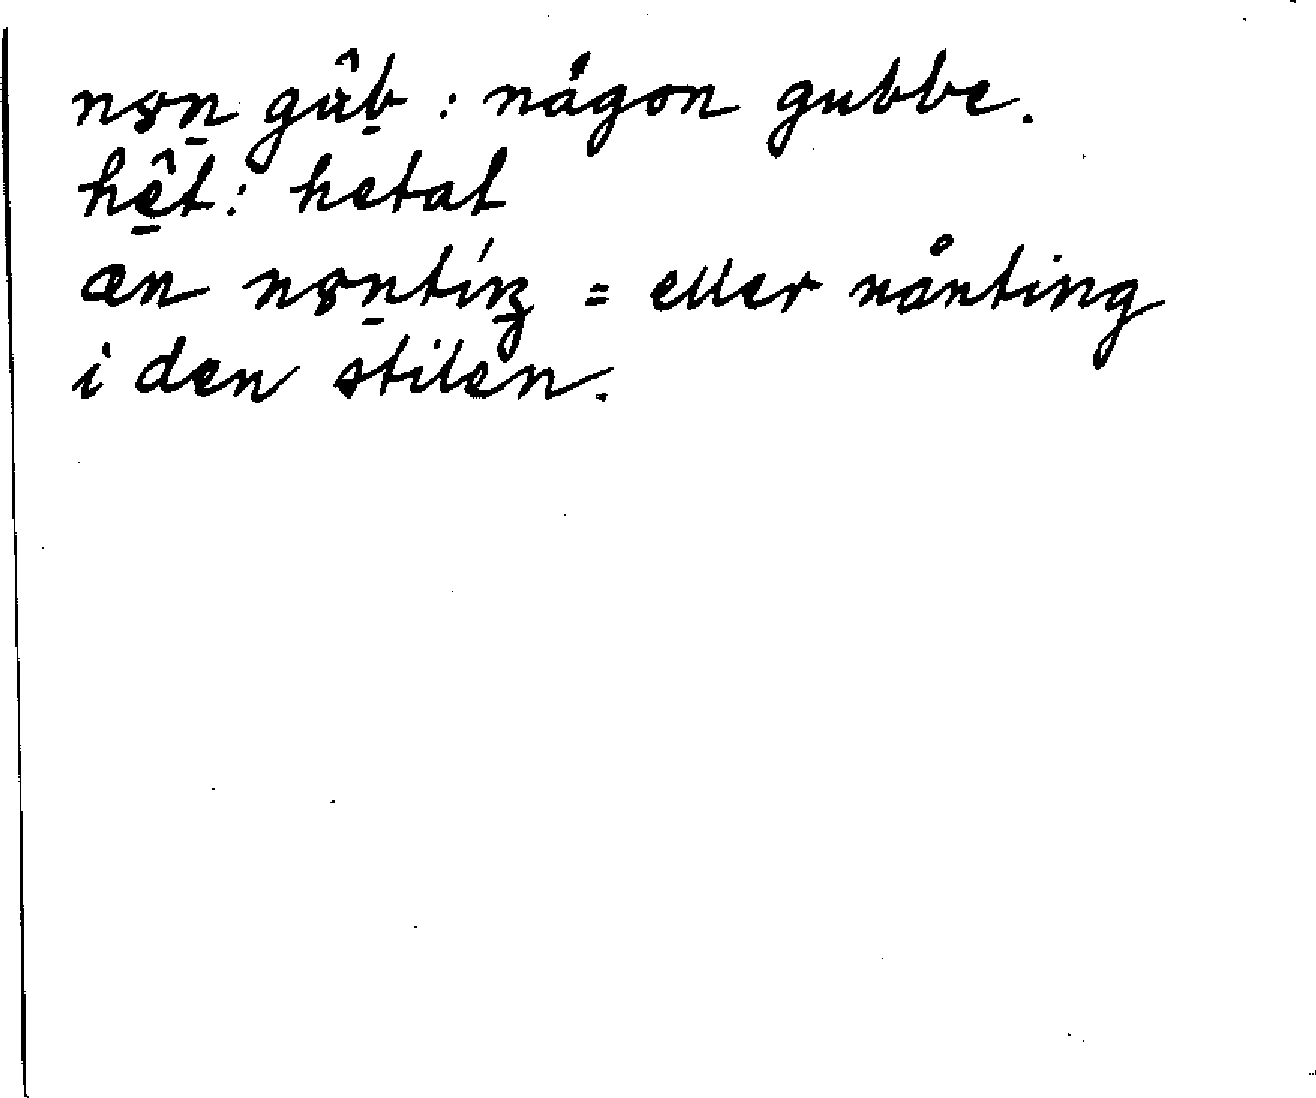 nɤn̠ gɯ̂b̠ : någon gubbe.
hê̠t : hetat
æn nɤn̠tíŋ̠ = eller nånting
i den stilen.